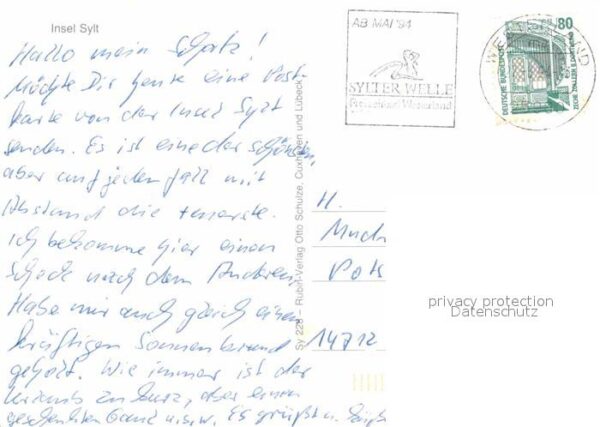 Insel Sylt
Hallo mein Schatz!
Möchte Dir heute eine Post-
karte von der Insel Sylt
senden. Es ist eine der schönsten,
aber auf jeden Fall mit
Abstand die teuerste.
Ich bekomme hier einen
Schock nach dem Anderen,
Habe mir auch gleich einen
kräftigen Sonnenbrand
geholt. Wie immer ist der
Urlaub zu kurz, aber einem
geschenkten Gaul u.s.w. Es grüßt u.
Sy 228 – Rubin-Verlag Otto Schulze, Cuxhaven und Lübeck
AB MAI '94
SYLTER WELLE
Freizeitbad Westerland
WESTERLAND
80
DEUTSCHE BUNDESPOST
ZECHE ZOLLERN II DORTMUND
H.
Pots
14712
privacy protection
Datenschutz